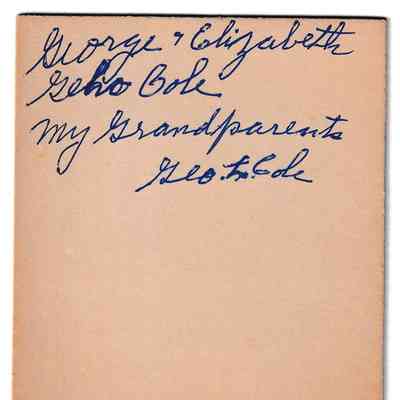 George & Elizabeth
Geho Cole
My Grandparents
Geo. L. Cole